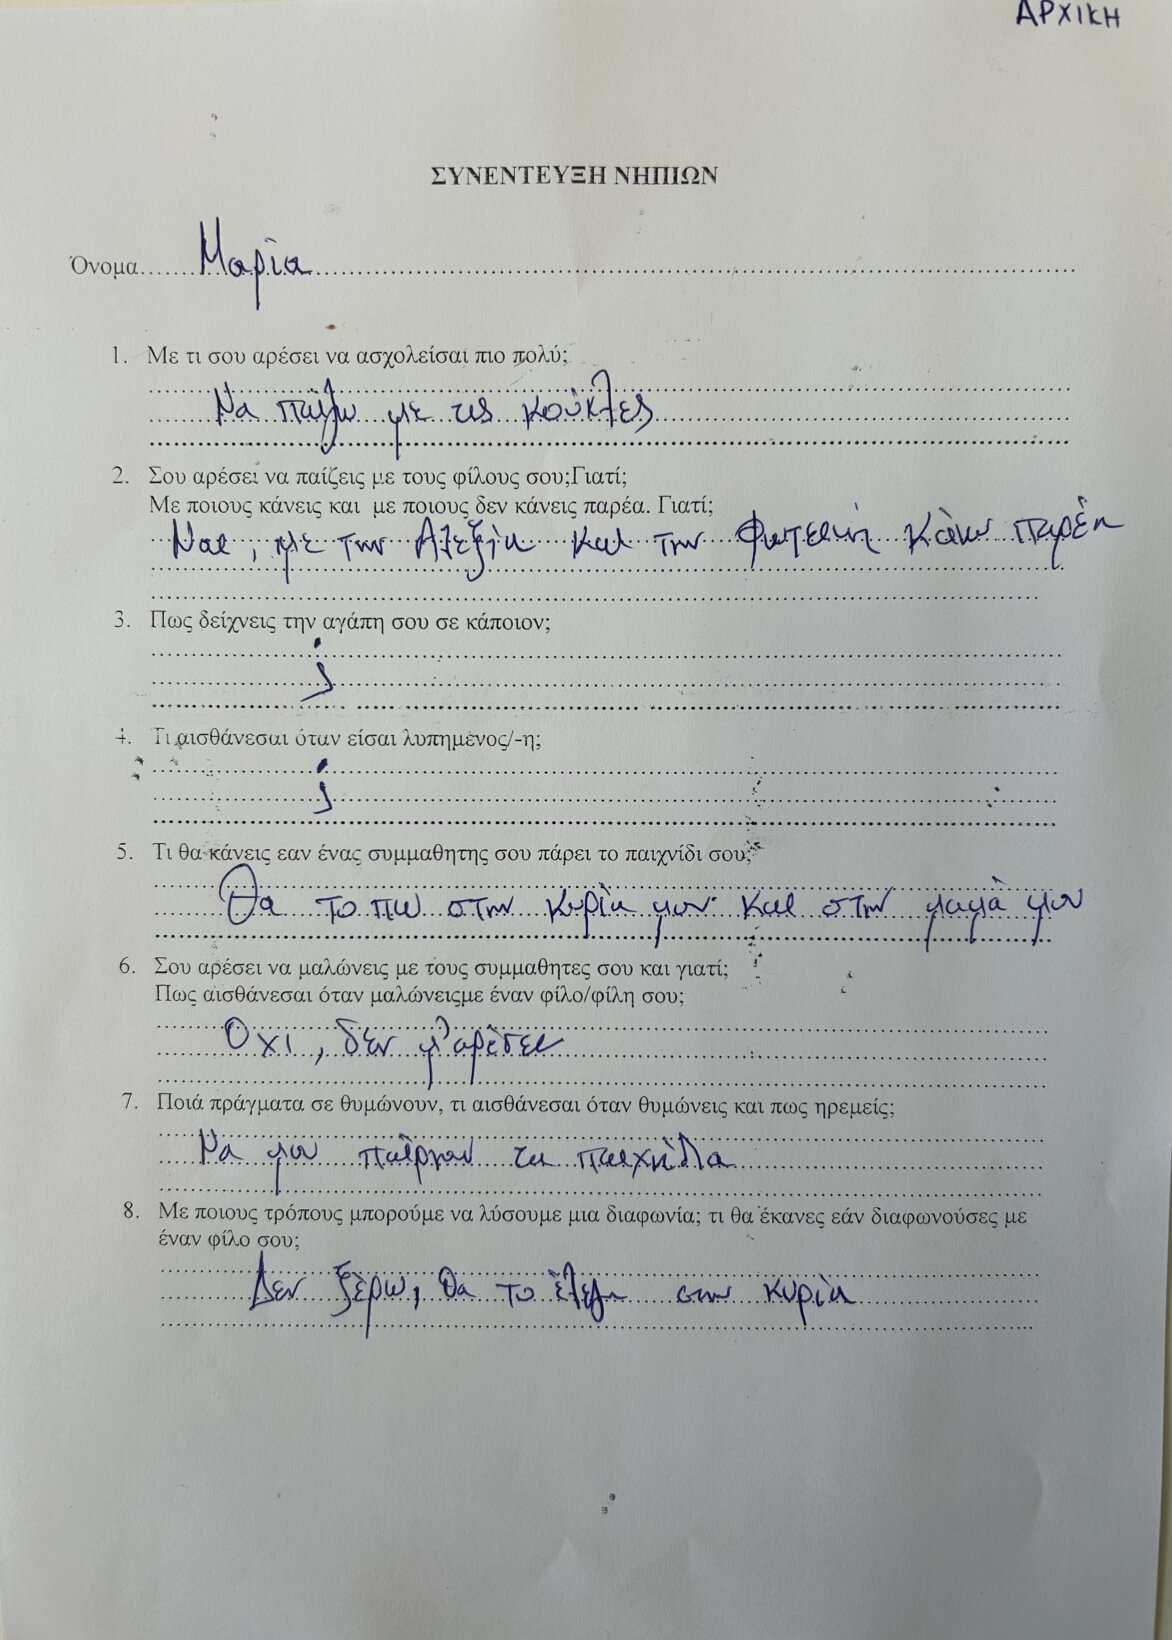 ΑΡΧΙΚΗ
ΣΥΝΕΝΤΕΥΞΗ ΝΗΠΙΩΝ
Όνομα Μαρία
1. Με τι σου αρέσει να ασχολείσαι πιο πολύ;
Να παίζω με τις κούκλες
2. Σου αρέσει να παίζεις με τους φίλους σου;Γιατί;
Με ποιους κάνεις και με ποιους δεν κάνεις παρέα. Γιατί;
Ναι, με την Αλεξία και την Φωτεινή κάνω παρέα
3. Πως δείχνεις την αγάπη σου σε κάποιον;
;
4. Τι αισθάνεσαι όταν είσαι λυπημένος/-η;
;
5. Τι θα κάνεις εαν ένας συμμαθητης σου πάρει το παιχνίδι σου;
Θα το πω στην κυρία μου και στην μαμά μου
6. Σου αρέσει να μαλώνεις με τους συμμαθητες σου και γιατί;
Πως αισθάνεσαι όταν μαλώνειςμε έναν φίλο/φίλη σου;
Όχι, δεν μ'αρέσει
7. Ποιά πράγματα σε θυμώνουν, τι αισθάνεσαι όταν θυμώνεις και πως ηρεμείς;
Να μου παίρνουν τα παιχνίδια
8. Με ποιους τρόπους μπορούμε να λύσουμε μια διαφωνία; τι θα έκανες εάν διαφωνούσες με
έναν φίλο σου;
Δεν ξέρω, θα το έλεγα στην κυρία